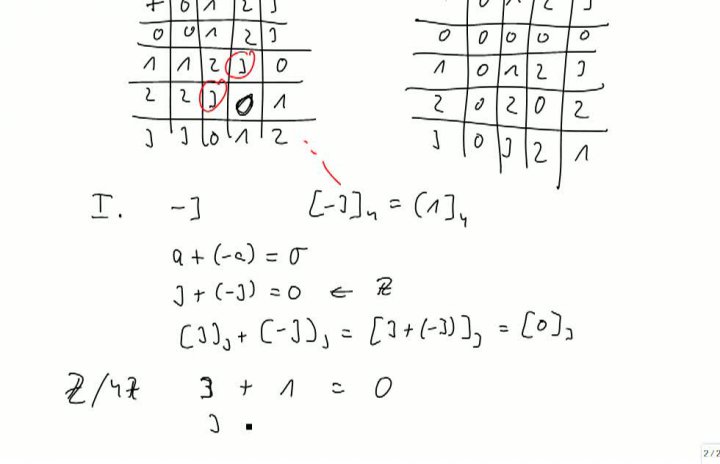 + 0 1 2 3
0 0 1 2 3
1 1 2 3 0
2 2 3 0 1
3 3 0 1 2
0 1 2 3
0 0 0 0 0
1 0 1 2 3
2 0 2 0 2
3 0 3 2 1
I. -3 [-3]₄ = [1]₄
a + (-a) = 0
3 + (-3) = 0 ← ℤ
[3]₃ + [-3]₃ = [3+(-3)]₃ = [0]₃
ℤ/4ℤ 3 + 1 = 0
3
2/2